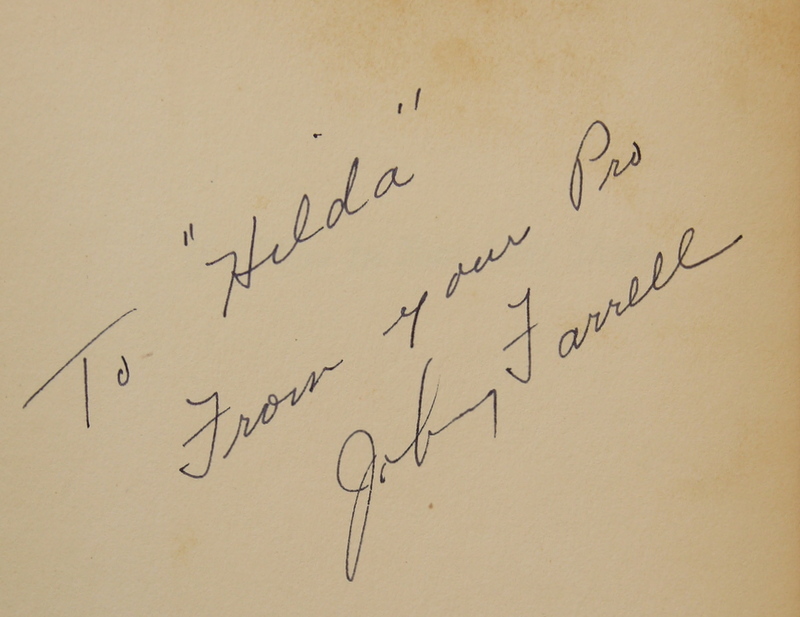 To "Hilda"
From your Pro
Johny Farrell